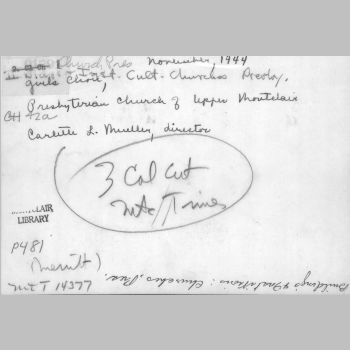 Church, Pres November, 1944
Inst. Cult. Churches Presby,
girls choir,
Presbyterian Church of Upper Montclair
CH 72a
Carlette L. Mueller, director
3 Col Cut
Mtc/Times
CLAIR
LIBRARY
P481
(Merritt)
Mt T 14377
Buildings & Institutions: Churches, Pres.